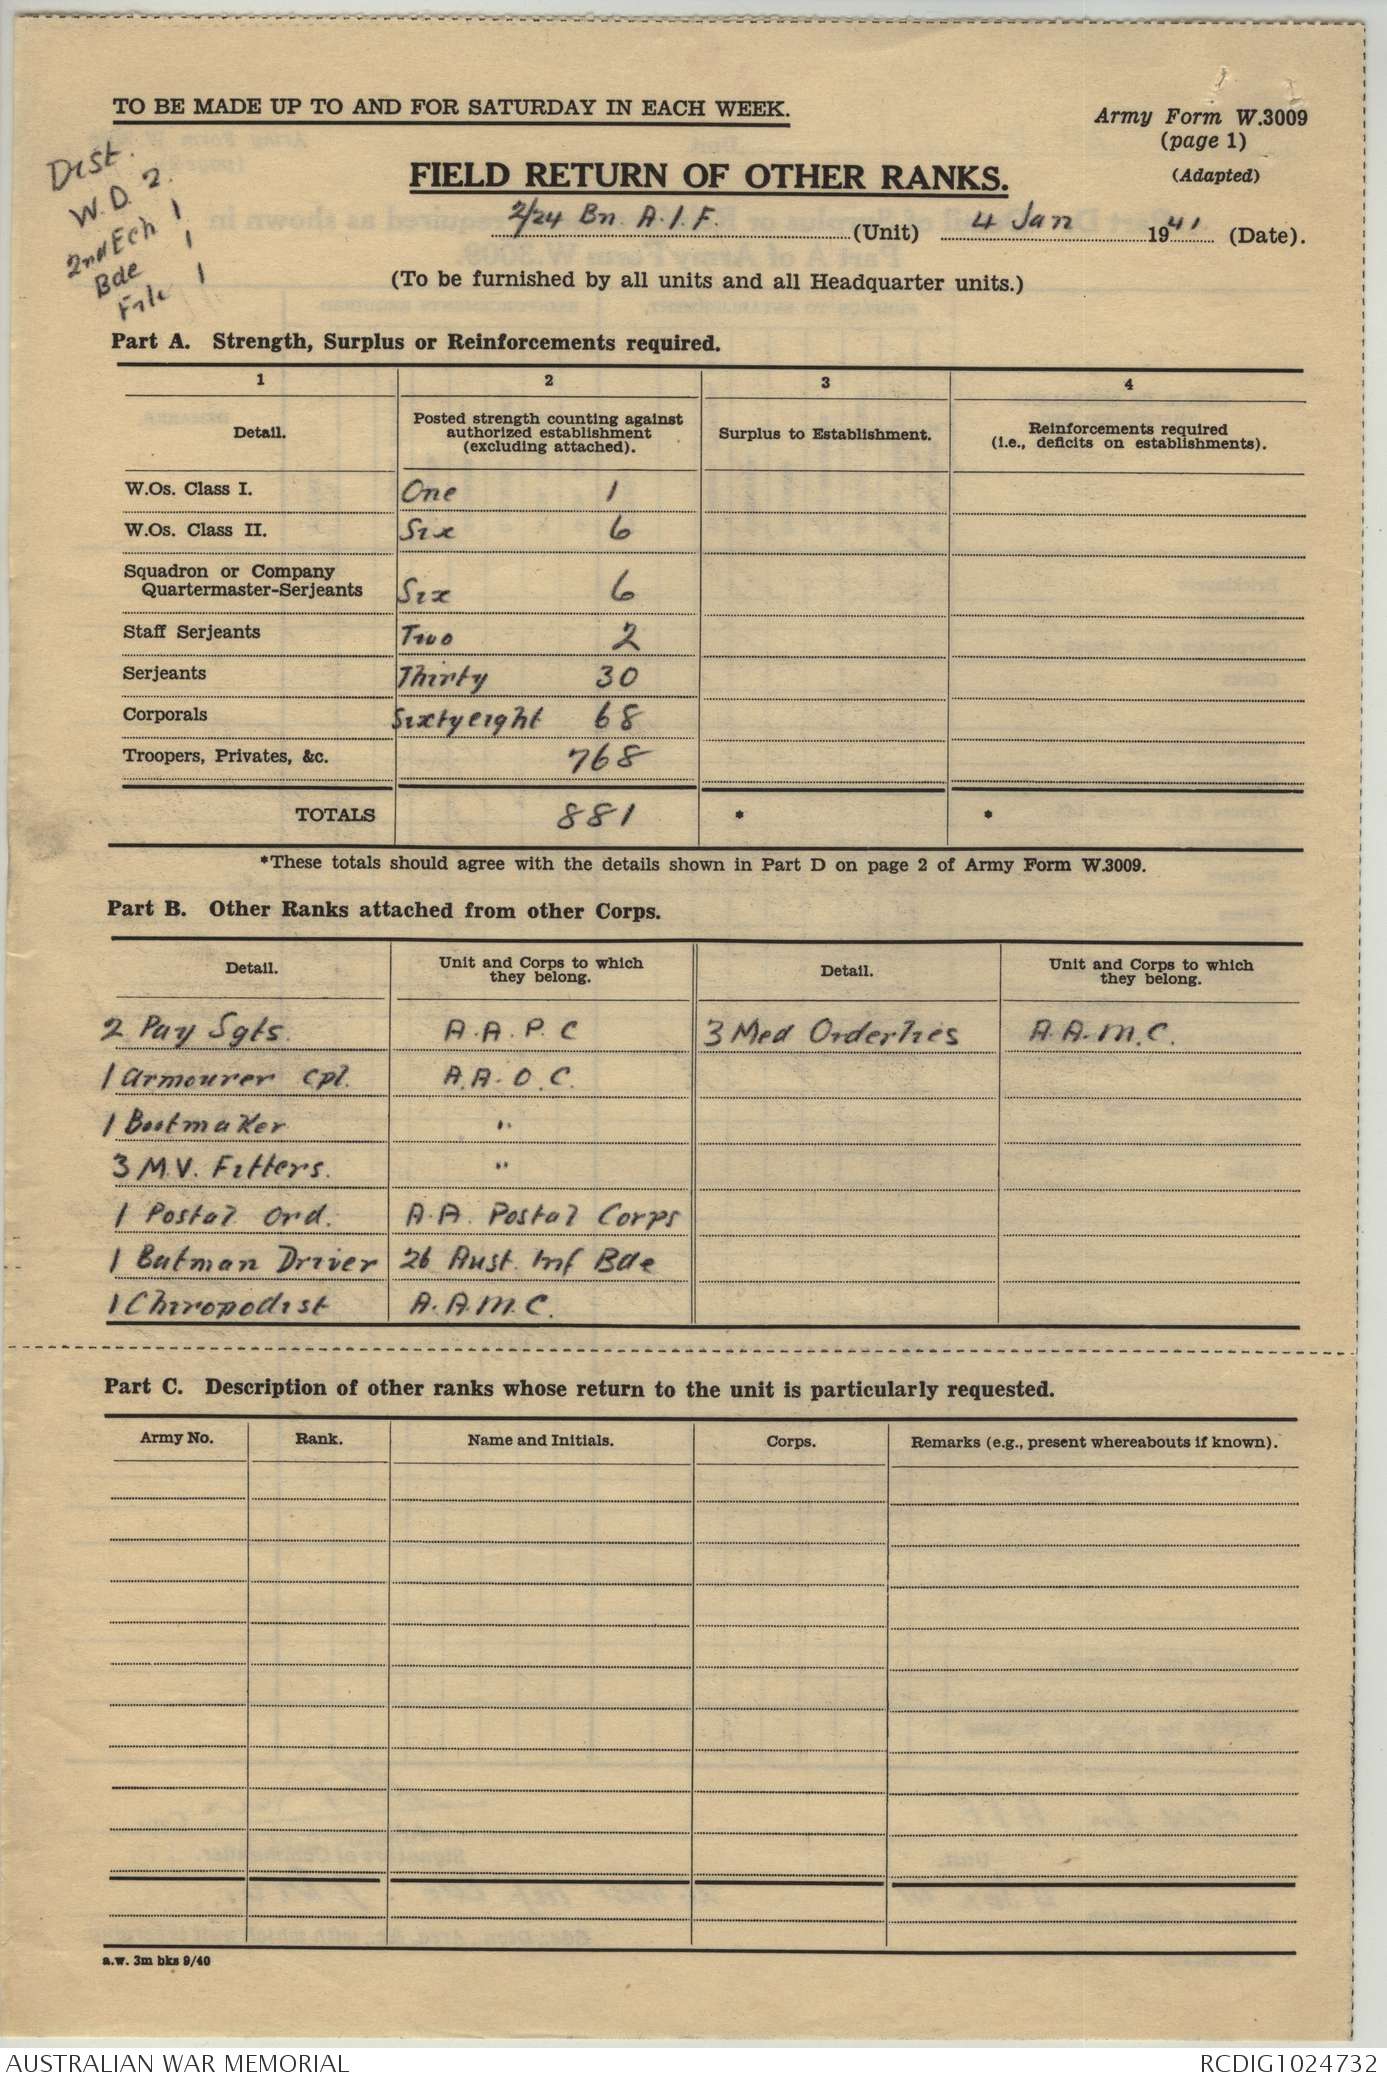 TO BE MADE UP TO AND FOR SATURDAY IN EACH WEEK.
Army Form W.3009
(page 1)
(Adapted)
Dist.
W.D. 2.
2nd Ech 1
Bde 1
File 1
FIELD RETURN OF OTHER RANKS.
2/24 Bn. A.I.F. (Unit) 4 Jan 1941 (Date).
(To be furnished by all units and all Headquarter units.)
Part A. Strength, Surplus or Reinforcements required.
1 2 3 4
Detail. Posted strength counting against authorized establishment (excluding attached). Surplus to Establishment. Reinforcements required (i.e., deficits on establishments).
W.Os. Class I. One 1
W.Os. Class II. Six 6
Squadron or Company
Quartermaster-Serjeants Six 6
Staff Serjeants Two 2
Serjeants Thirty 30
Corporals Sixtyeight 68
Troopers, Privates, &c. 768
TOTALS 881 * *
*These totals should agree with the details shown in Part D on page 2 of Army Form W.3009.
Part B. Other Ranks attached from other Corps.
Detail. Unit and Corps to which they belong. Detail. Unit and Corps to which they belong.
2 Pay Sgts. A.A.P.C 3 Med Orderlies A.A.M.C.
1 Armourer Cpl. A.A.O.C.
1 Bootmaker "
3 M.V. Fitters. "
1 Postal Ord. A.A. Postal Corps
1 Batman Driver 26 Aust. Inf Bde
1 Chiropodist A.A.M.C.
Part C. Description of other ranks whose return to the unit is particularly requested.
Army No. Rank. Name and Initials. Corps. Remarks (e.g., present whereabouts if known).
a.w. 3m bks 9/40
AUSTRALIAN WAR MEMORIAL RCDIG1024732